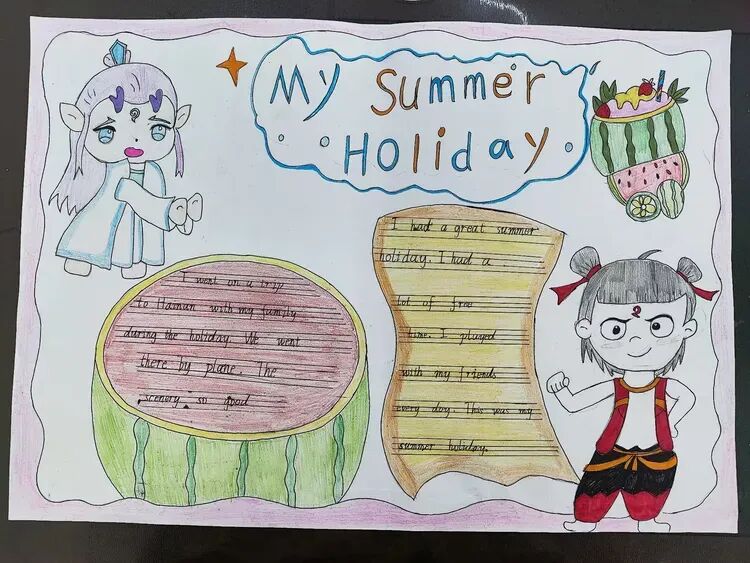 My Summer
Holiday
I went on a trip
to Hainan with my family
during the holiday We went
there by plane. The
scenery so good
I had a great summer
holiday. I had a
lot of free
time. I played
with my friends
every day. This was my
summer holiday.